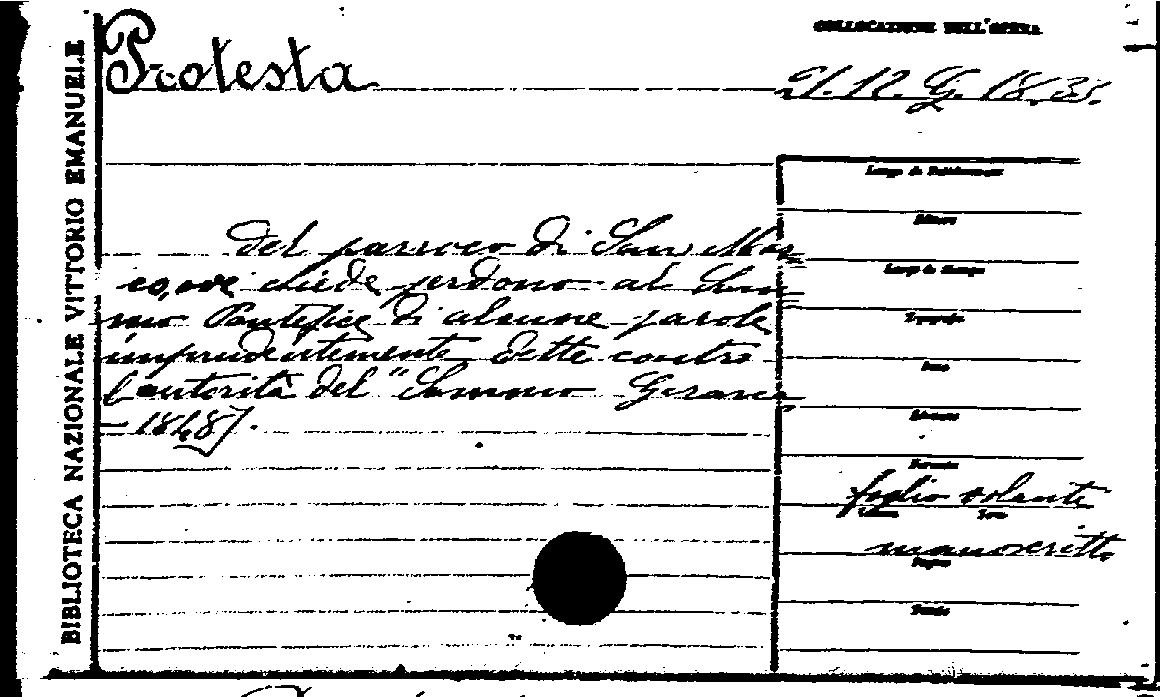 BIBLIOTECA NAZIONALE VITTORIO EMANUELE
Protesta
COLLOCAZIONE DELL'OPERA
21. 12. G. 18.35.
del parroco di San Mar=
co, ove chiede perdono al Som=
mo Pontefice di alcune parole
imprudentemente dette contro
l'autorità del "Sommo Gerarca
- 1848].
Luogo di Pubblicazione
Editore
Luogo di Stampa
Tipografia
Data
Edizione
Formato
foglio volante
Volume Tomo
manoscritto
Pagine
Fondo